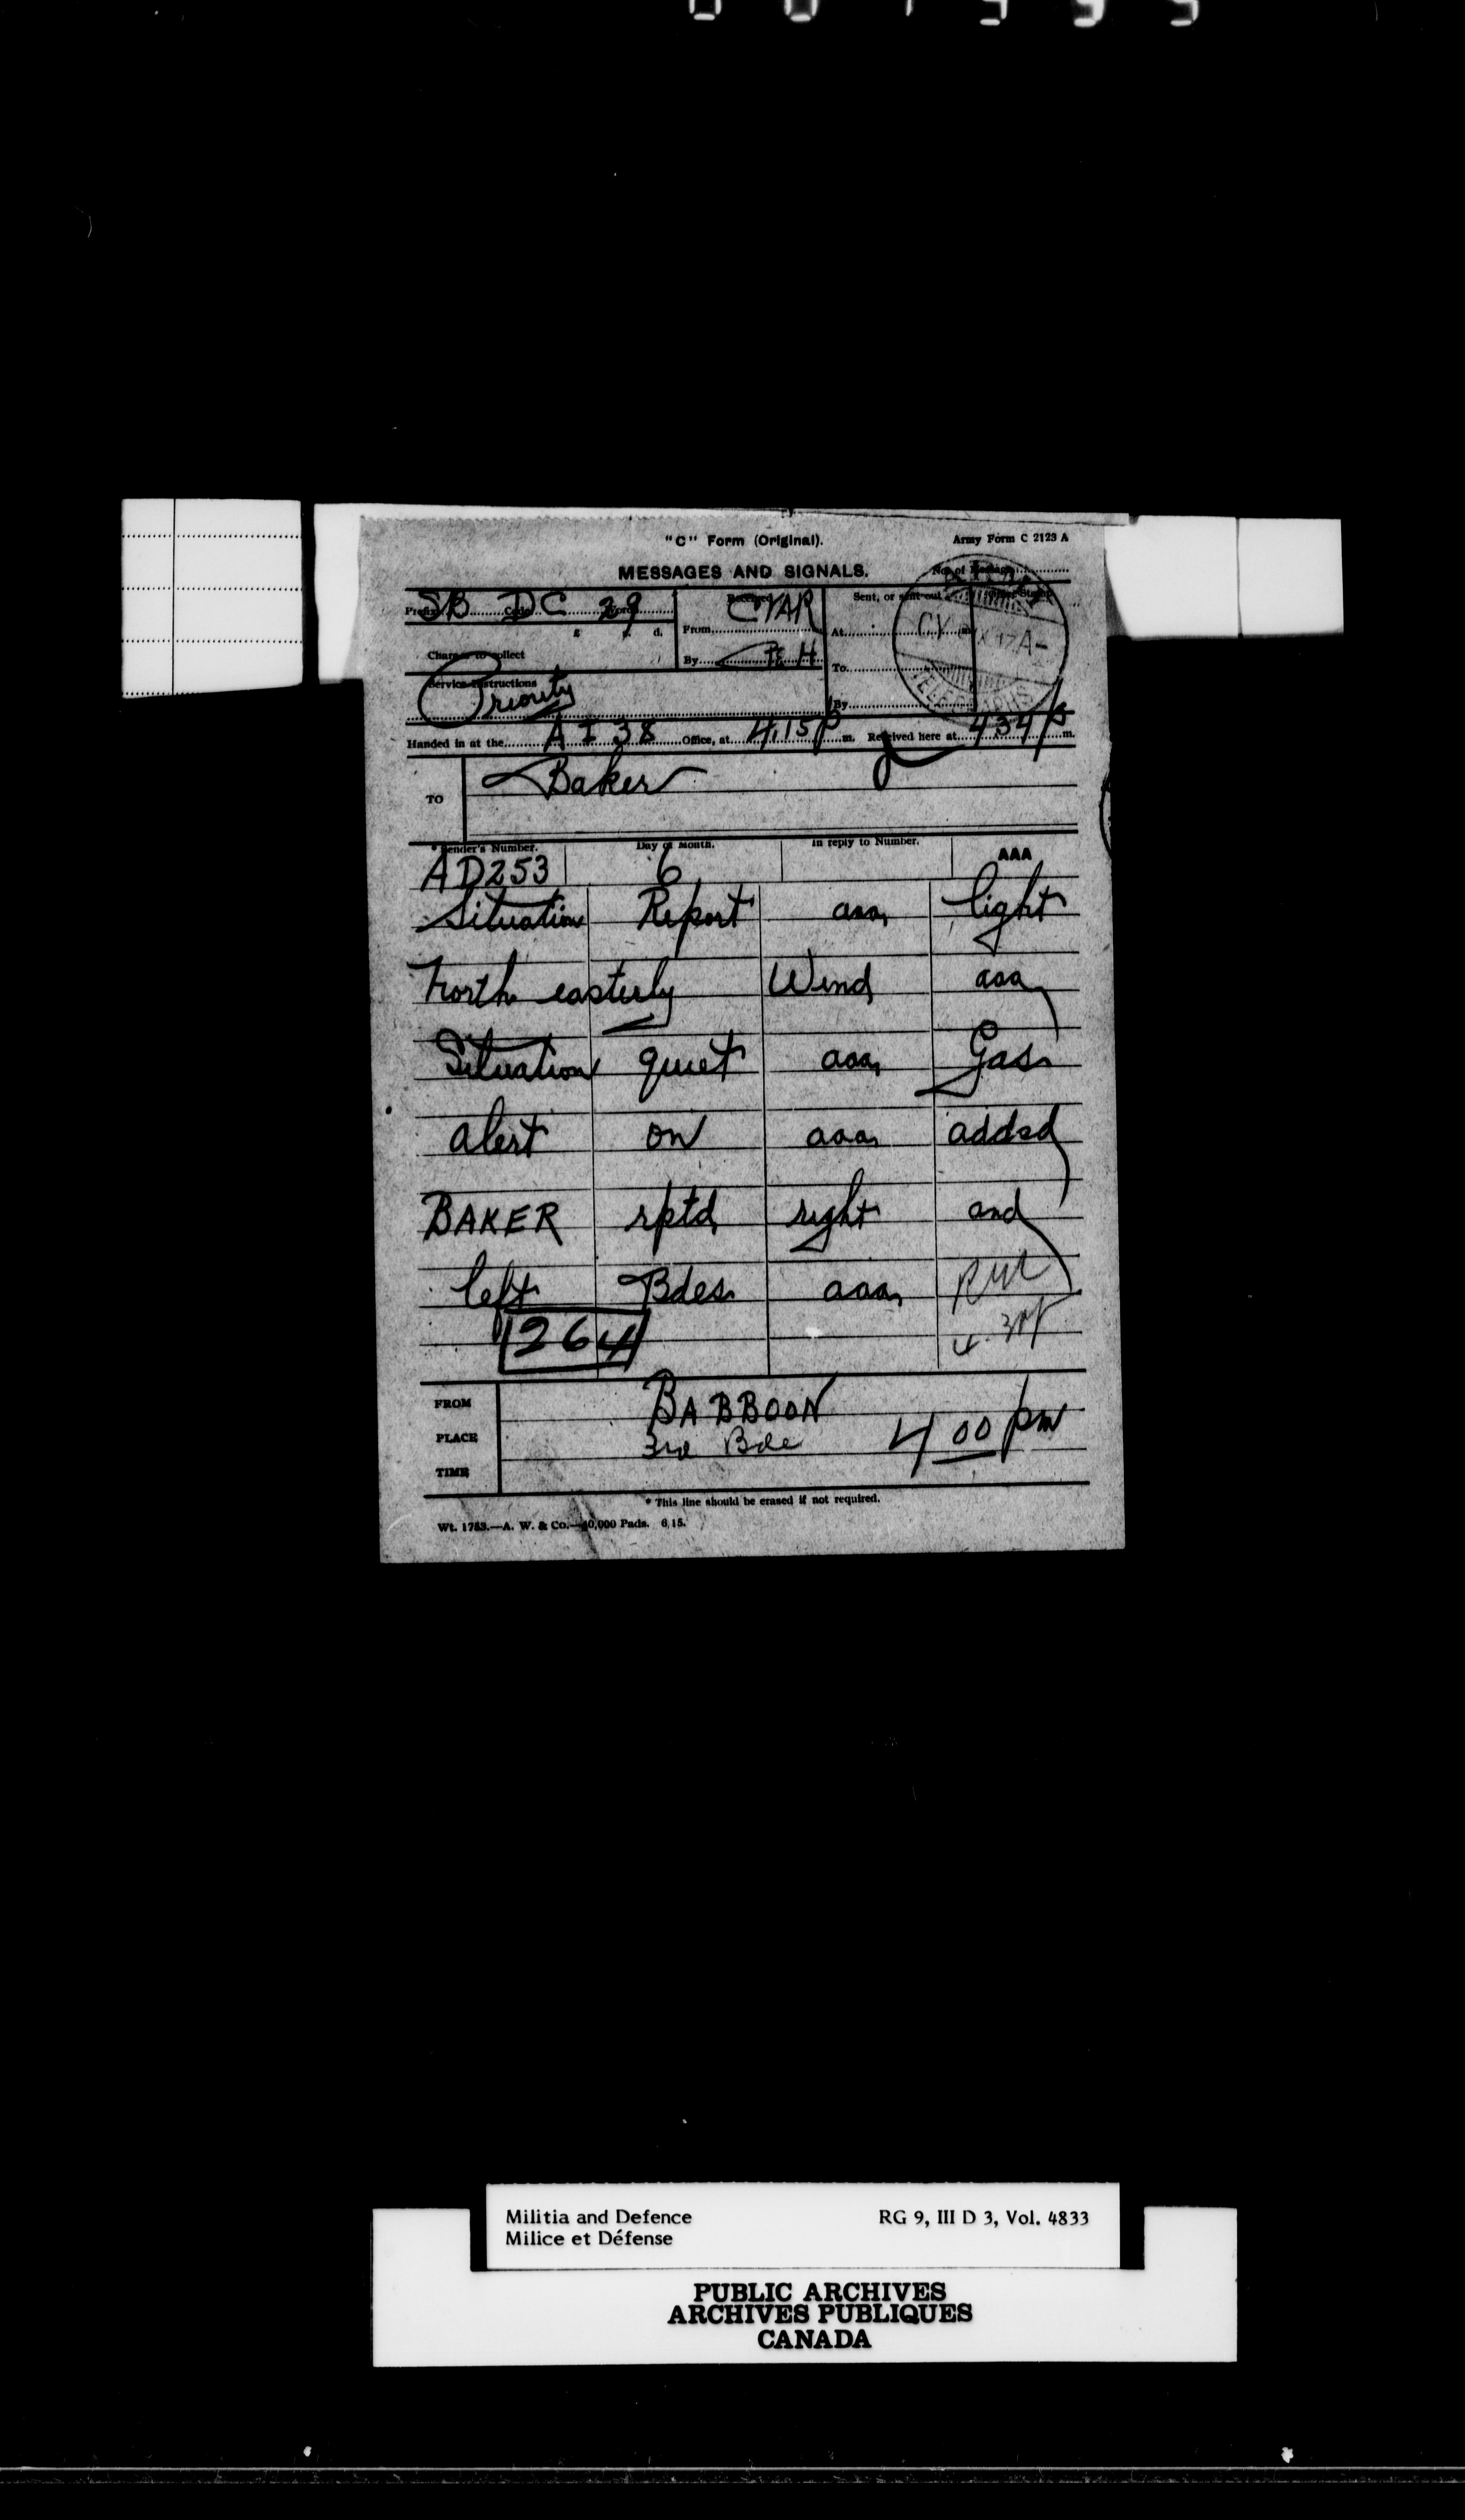 "C" Form (Original). Army Form C 2123 A
MESSAGES AND SIGNALS. No. of Message
Prefix SB Code DC Words 29 Received From CYAR Sent, or sent out Office Stamp
£ s. d. At m.
Charges to collect By To
Service Instructions Priority By TELEGRAPHS
Handed in at the AI38 Office, at 4.15 p m. Received here at 434 p m.
TO Baker
* Sender's Number. Day of Month. In reply to Number. AAA
AD253 6
Situation Report aaa light
North easterly Wind aaa
Situation quiet aaa Gas
alert on aaa added
BAKER rptd right and
left Bdes aaa
264
FROM BABBOON
PLACE 3rd Bde 4 00 pm
TIME
* This line should be erased if not required.
Wt. 1753.—A. W. & Co.—40,000 Pads. 6,15.
Militia and Defence RG 9, III D 3, Vol. 4833
Milice et Défense
PUBLIC ARCHIVES
ARCHIVES PUBLIQUES
CANADA